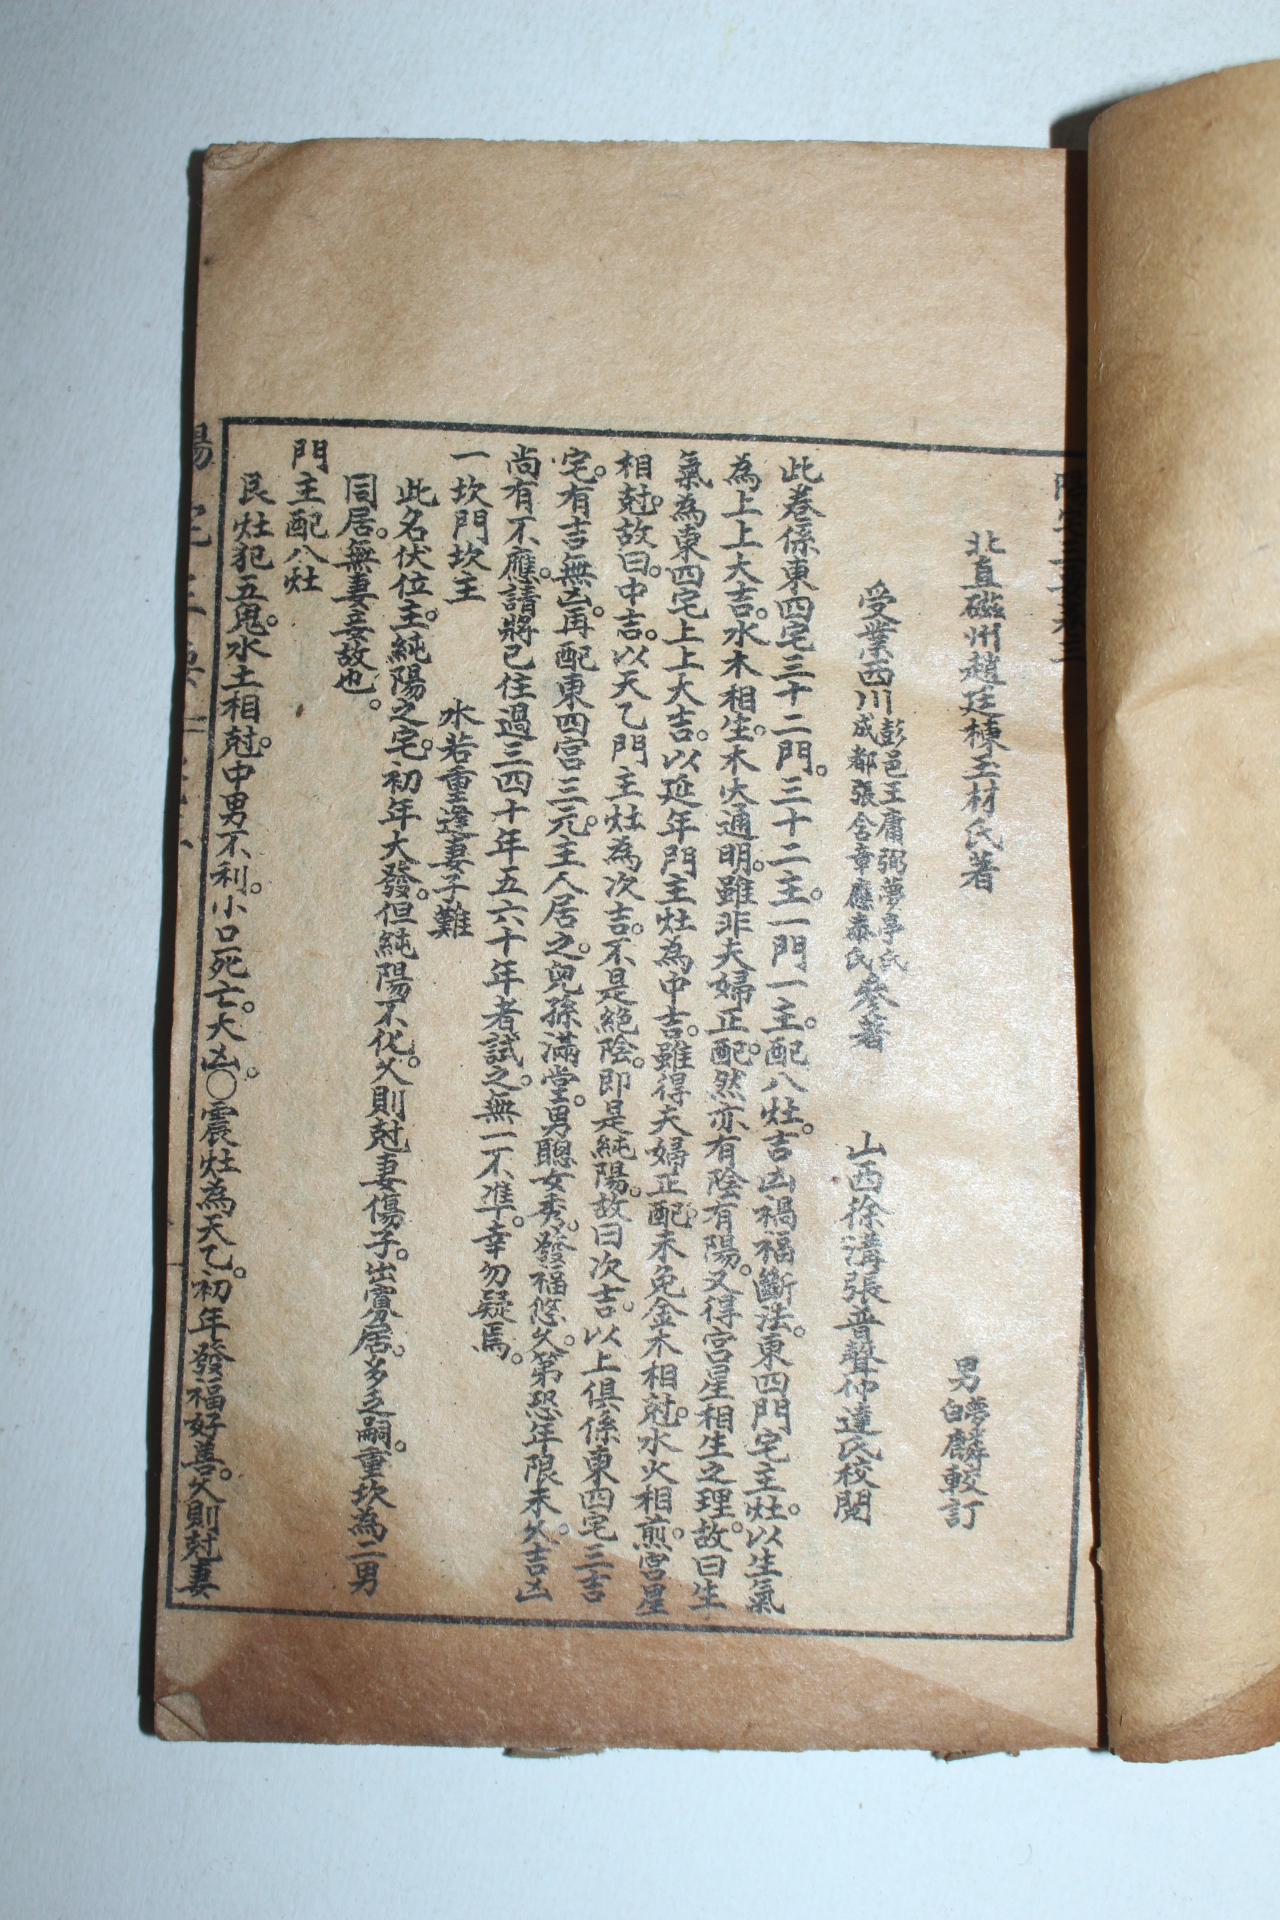 陽宅三要卷三
北直磁州趙廷棟玉材氏著
男夢麟較訂
受業西川彭邑王庸弼夢亭氏
成都張含章應泰氏參著
山西徐溝張普聲仲達氏校閱
此卷係東四宅三十二門。三十二主。一門一主。配八灶。吉凶禍福斷法。東四門宅主灶。以生氣
為上上大吉。水木相生。木火通明。雖非夫婦正配。然亦有陰有陽。又得宮星相生之理。故曰生
氣為東四宅上上大吉。以延年門主灶為中吉。雖得夫婦正配。未免金木相尅。水火相煎。宮星
相尅。故曰。中吉。以天乙門主灶為次吉。不是絕陰。即是純陽。故曰次吉。以上俱係東四宅三吉
宅。有吉無凶。再配東四宮三元。主人居之。兒孫滿堂。男聰女秀。發福悠久。第恐年限未久。吉凶
尚有不應。請將已住過三四十年五六十年者試之。無一不準。幸勿疑焉。
一坎門坎主　水若重逢妻子難
此名伏位主。純陽之宅。初年大發。但純陽不化。久則尅妻傷子。出寡居。多乏嗣。重坎為二男
同居。無妻妾故也。
門主配八灶
艮灶犯五鬼。水土相尅。中男不利。小口死亡。大凶。〇震灶為天乙。初年發福好善。久則尅妻
陽宅三要